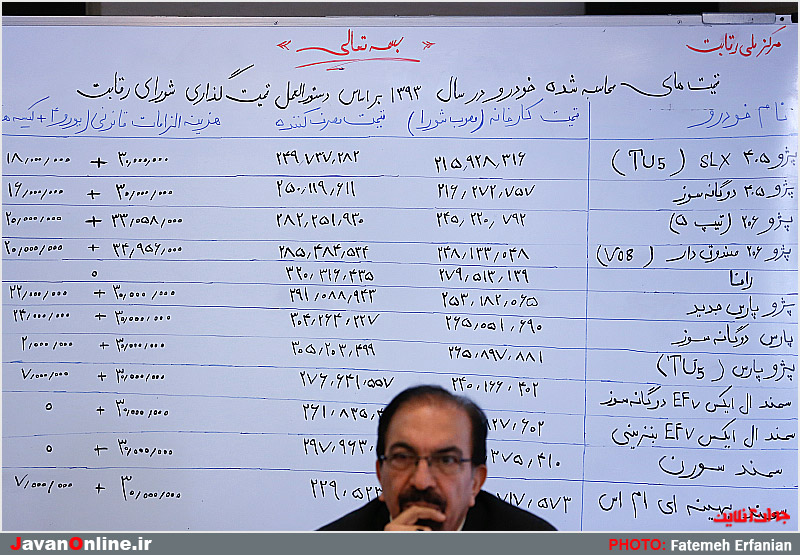 مرکز ملی رقابت
« بسمه تعالی »
قیمت های محاسبه شده خودرو در سال ۱۳۹۳ براساس دستورالعمل قیمت گذاری شورای رقابت
نام خودرو قیمت کارخانه (مصوب شورا) قیمت مصرف کننده هزینه الزامات قانونی (یورو ۴ + کیسه ه
پژو ۴۰۵ SLX (TU5) ۲۱۵٫۹۲۸٫۳۱۶ ۲۴۹٫۷۳۷٫۲۸۲ ۳۰٫۰۰۰٫۰۰۰ + ۱۸٫۰۰۰٫۰۰۰
پژو ۴۰۵ دوگانه سوز ۲۱۶٫۲۷۲٫۷۵۷ ۲۵۰٫۱۱۹٫۶۱۱ ۳۰٫۰۰۰٫۰۰۰ + ۱۶٫۰۰۰٫۰۰۰
پژو ۲۰۶ (تیپ ۵) ۲۴۵٫۲۲۰٫۷۹۲ ۲۸۲٫۲۵۱٫۹۳۰ ۳۳٫۰۵۸٫۰۰۰ + ۲۰٫۰۰۰٫۰۰۰
پژو ۲۰۶ صندوق دار (V08) ۲۴۸٫۱۳۳٫۰۴۸ ۲۸۵٫۴۸۴٫۵۳۴ ۳۴٫۹۵۶٫۰۰۰ + ۲۰٫۰۰۰٫۰۰۰
رانا ۲۷۹٫۵۱۳٫۱۳۹ ۳۲۰٫۳۱۶٫۴۳۵ ۰
پژو پارس جدید ۲۵۳٫۱۸۲٫۰۶۵ ۲۹۱٫۰۸۸٫۹۴۳ ۳۰٫۰۰۰٫۰۰۰ + ۲۲٫۰۰۰٫۰۰۰
پارس دوگانه سوز ۲۶۵٫۰۵۱٫۶۹۰ ۳۰۴٫۲۶۴٫۲۲۷ ۳۰٫۰۰۰٫۰۰۰ + ۲۴٫۰۰۰٫۰۰۰
پژو پارس (TU5) ۲۶۵٫۸۹۷٫۸۸۱ ۳۰۵٫۲۰۳٫۴۹۹ ۳۰٫۰۰۰٫۰۰۰ + ۲٫۰۰۰٫۰۰۰
سمند ال ایکس EF7 دوگانه سوز ۲۴۰٫۱۶۶٫۴۰۲ ۲۷۶٫۶۴۱٫۵۵۷ ۳۰٫۰۰۰٫۰۰۰ + ۷٫۰۰۰٫۰۰۰
سمند ال ایکس EF7 بنزینی ۸۲۷٫۶۰۲ ۲۶۱٫۸۳۵ ۳۰٫۰۰۰٫۰۰۰ + ۰
سمند سورن ۲۷۵٫۴۱۰ ۲۹۷٫۹۶۳ ۳۰٫۰۰۰٫۰۰۰ + ۰
بهینه ای ام اس ۷۱۷٫۵۷۳ ۲۲۹٫۵۲۳ ۳۰٫۰۰۰٫۰۰۰ + ۷٫۰۰۰٫۰۰۰
جوان آنلاین
JavanOnline.ir PHOTO: Fatemeh Erfanian